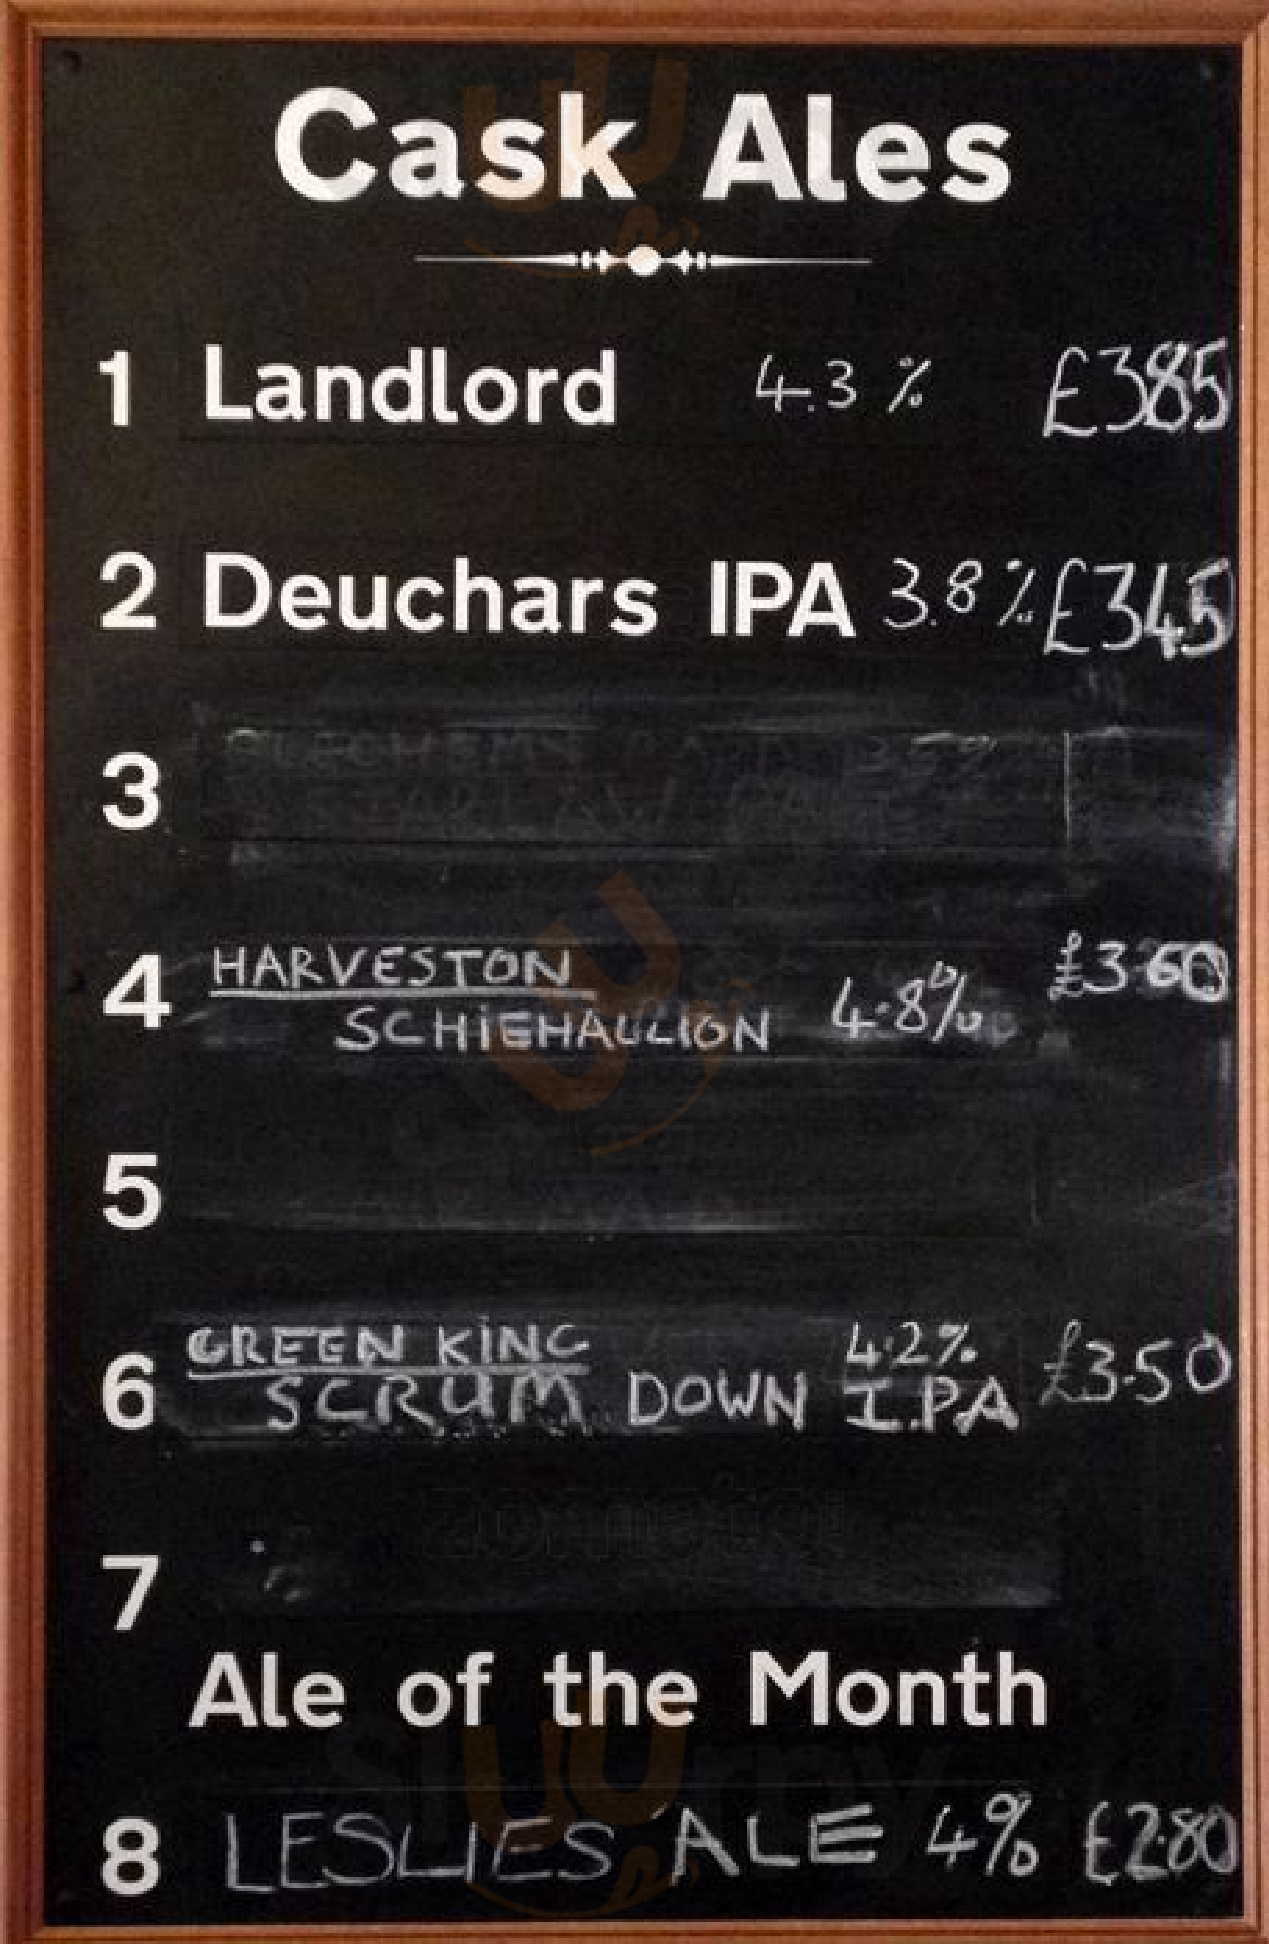 Cask Ales
1 Landlord 4.3 % £385
2 Deuchars IPA 3.8% £345
3
4 HARVESTON £3 60
SCHiEHALLION 4.8%
5
6 GREEN KiNG 4.2% £3.50
SCRUM DOWN I.PA
7
Ale of the Month
8 LESLIES ALE 4% £2.80